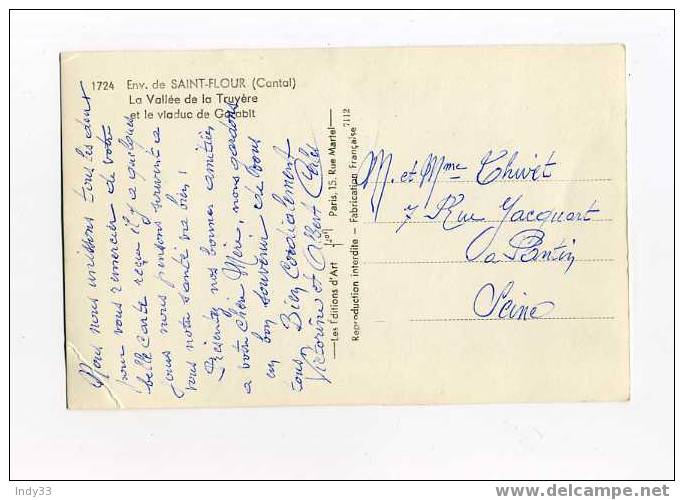 1724 Env. de SAINT-FLOUR (Cantal)
La Vallée de la Truyère
et le viaduc de Garabit
Nous nous unissons tous les deux
pour vous remercier de votre
belle carte reçue il y a quelques
jours nous pensons souvent a
vous votre santé va bien,
Présentez nos bonnes amitiés
a votre chère Mère, nous gardons
un bon souvenir de vous
tous Bien Cordialement
Victorine et Albert
Les Editions d'Art Paris, 15, Rue Martel
Reproduction interdite - Fabrication Française 7112
M. et Mme Thivet
7 Rue Jacquart
a Pantin
Seine
Indy33
www.delcampe.net